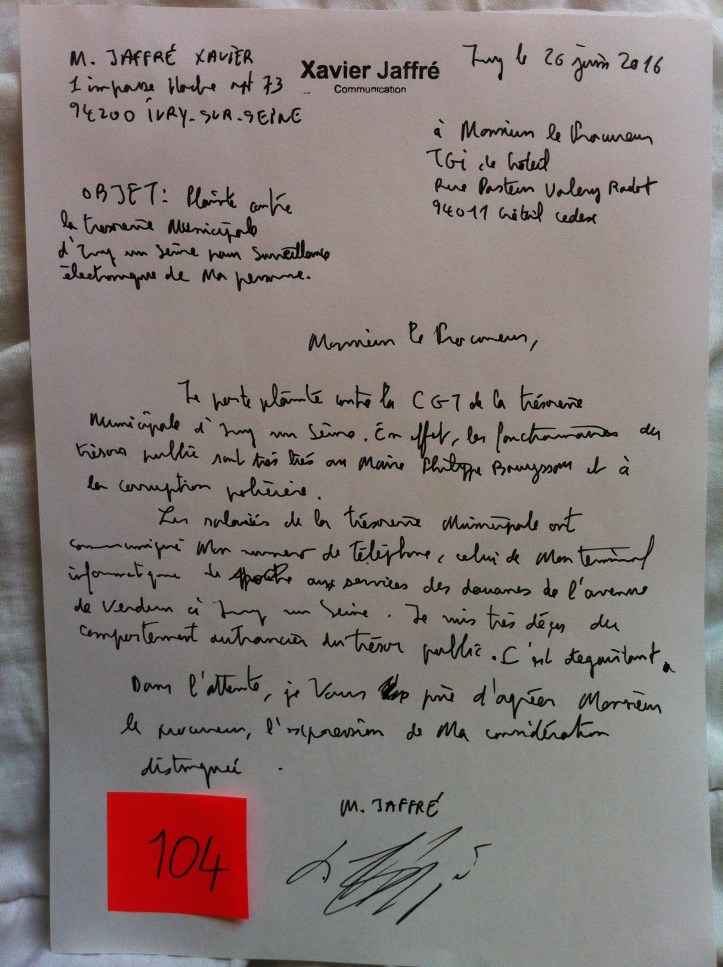 M. JAFFRÉ XAVIER
1 impasse Hoche apt 73
94200 IVRY-SUR-SEINE
Xavier Jaffré
Communication
Ivry le 26 juin 2016
à Monsieur le Procureur
TGI de Créteil
Rue Pasteur Valery Radot
94011 Créteil cedex
OBJET: Plainte contre
la trésorerie Municipale
d'Ivry sur Seine pour Surveillance
électronique de Ma personne.
Monsieur le Procureur,
Je porte plainte contre la CGT de la trésorerie
Municipale d'Ivry sur Seine. En effet, les fonctionnaires du
trésors public sont très liés au Maire Philippe Bouyssou et à
la corruption policière.
Les salariés de la trésorerie Municipale ont
communiqué Mon numero de téléphone, celui de Mon terminal
informatique de poche aux services des douanes de l'avenue
de Verdun à Ivry sur Seine. Je suis très déçu du
comportement outrancier du trésor public. C'est dégoûtant.
Dans l'attente, je Vous prie d'agréer Monsieur
le procureur, l'expression de Ma considération
distinguée.
M. JAFFRÉ
104